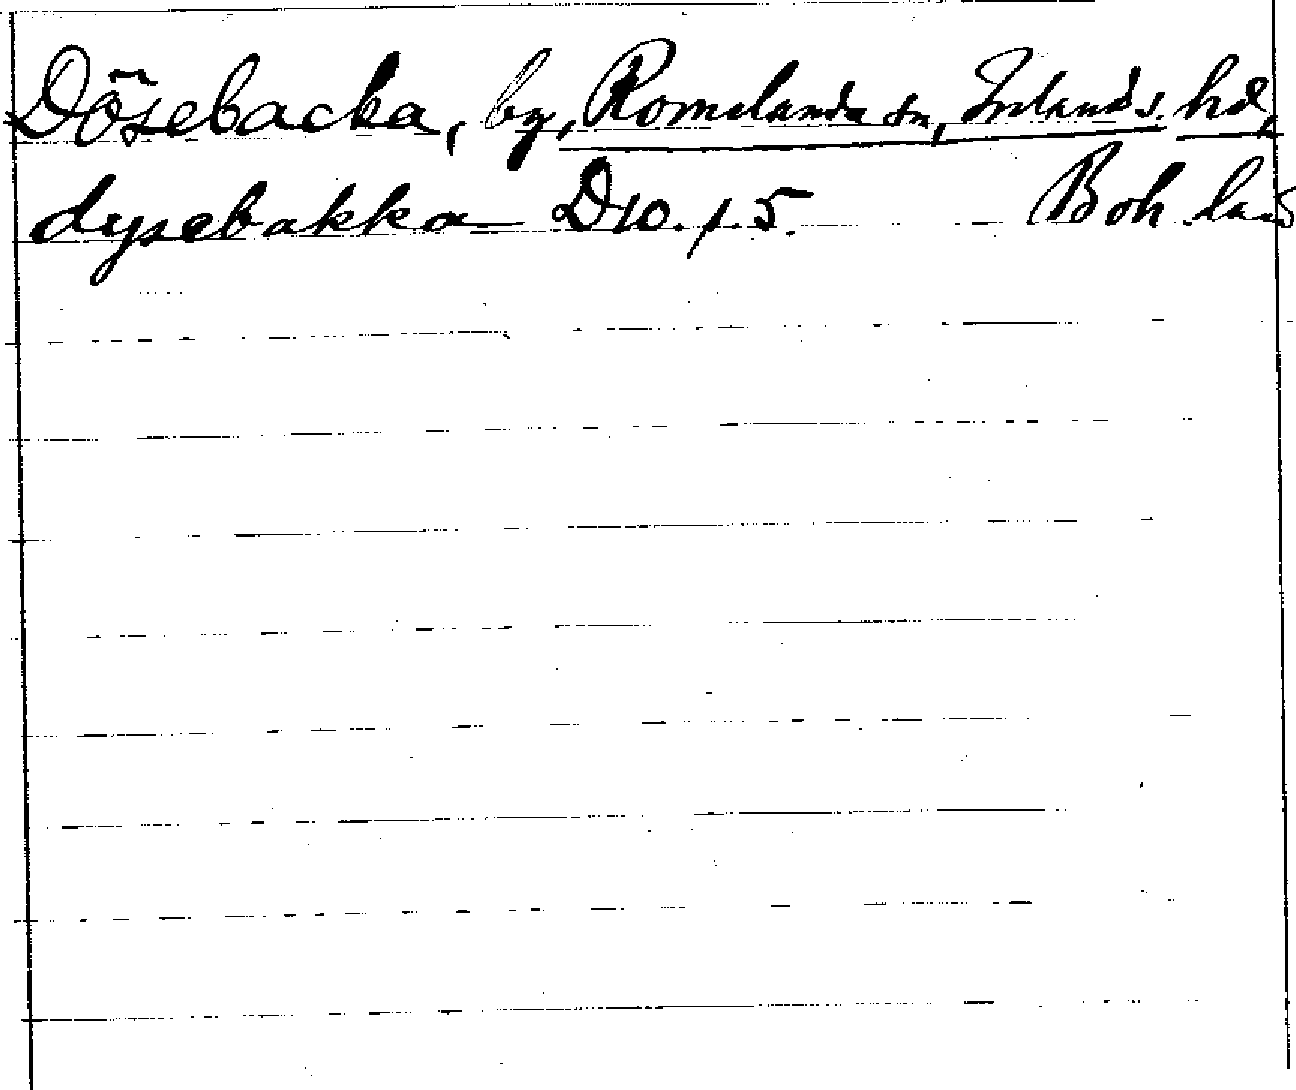 Dösebacka, by, Romelanda sn, Inlands. hd,
dysebakka D10. 1. 5. Boh. län